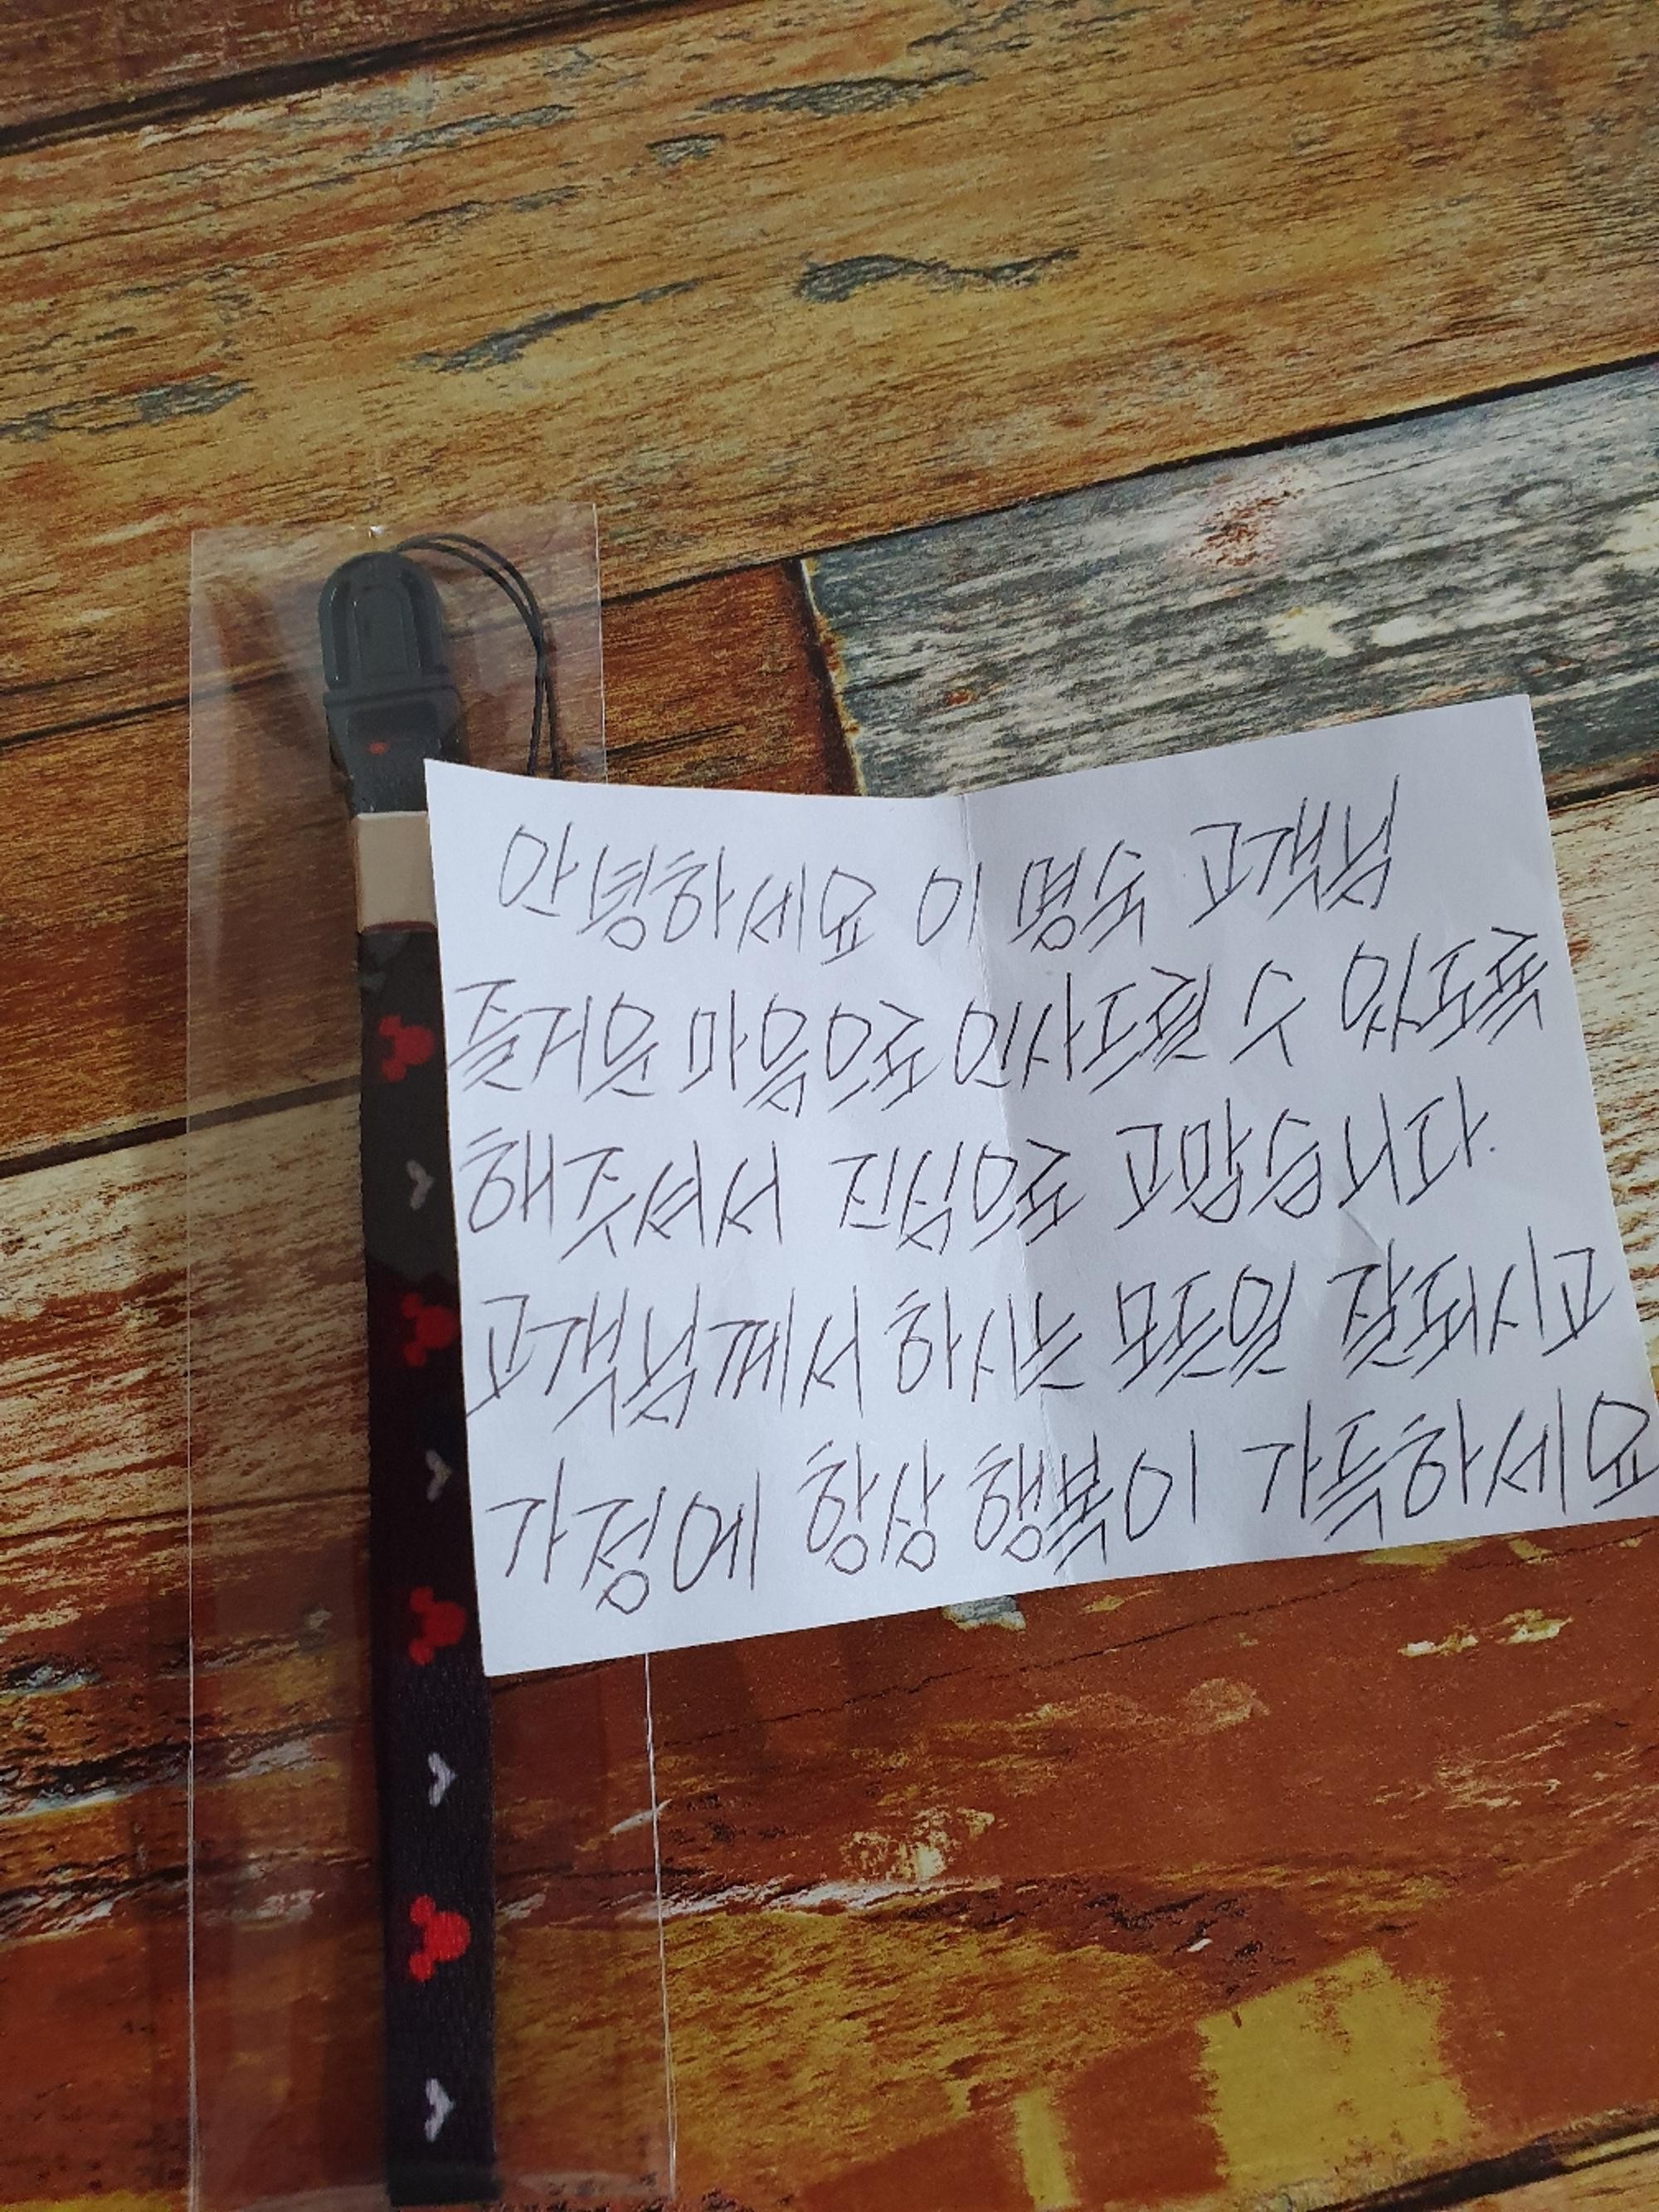 안녕하세요 이명숙 고객님
즐거운 마음으로 인사드릴 수 있도록
해주셔서 진심으로 고맙습니다.
고객님께서 하시는 모든일 잘되시고
가정에 항상 행복이 가득하세요